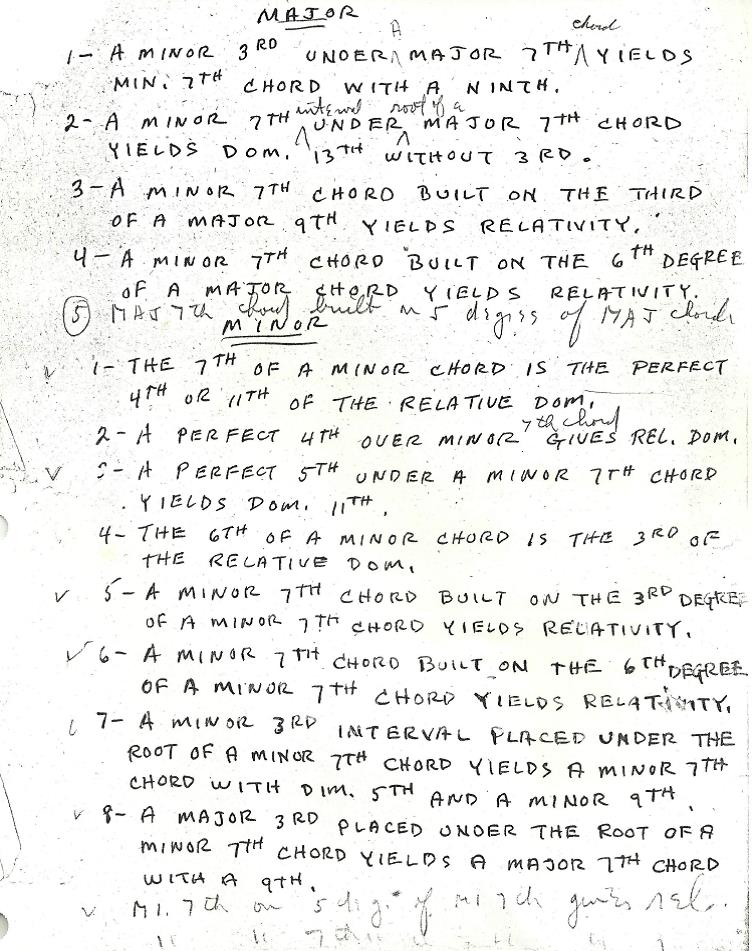 MAJOR
1- A MINOR 3RD UNDER A MAJOR 7TH chord YIELDS
MIN. 7TH CHORD WITH A NINTH.
2- A MINOR 7TH interval UNDER root of a MAJOR 7TH CHORD
YIELDS DOM. 13TH WITHOUT 3RD.
3- A MINOR 7TH CHORD BUILT ON THE THIRD
OF A MAJOR 9TH YIELDS RELATIVITY.
4- A MINOR 7TH CHORD BUILT ON THE 6TH DEGREE
OF A MAJOR CHORD YIELDS RELATIVITY.
5 MAJ 7th chord built on 5 degree of MAJ chord
MINOR
1- THE 7TH OF A MINOR CHORD IS THE PERFECT
4TH OR 11TH OF THE RELATIVE DOM.
2- A PERFECT 4TH OVER MINOR 7th chord GIVES REL. DOM.
3- A PERFECT 5TH UNDER A MINOR 7TH CHORD
YIELDS DOM. 11TH.
4- THE 6TH OF A MINOR CHORD IS THE 3RD OF
THE RELATIVE DOM.
5- A MINOR 7TH CHORD BUILT ON THE 3RD DEGREE
OF A MINOR 7TH CHORD YIELDS RELATIVITY.
6- A MINOR 7TH CHORD BUILT ON THE 6TH DEGREE
OF A MINOR 7TH CHORD YIELDS RELATIVITY.
7- A MINOR 3RD INTERVAL PLACED UNDER THE
ROOT OF A MINOR 7TH CHORD YIELDS A MINOR 7TH
CHORD WITH DIM. 5TH AND A MINOR 9TH.
8- A MAJOR 3RD PLACED UNDER THE ROOT OF A
MINOR 7TH CHORD YIELDS A MAJOR 7TH CHORD
WITH A 9TH.
MI. 7th on 5 dig. of MI 7ch gives rel.
" " 7th " " "